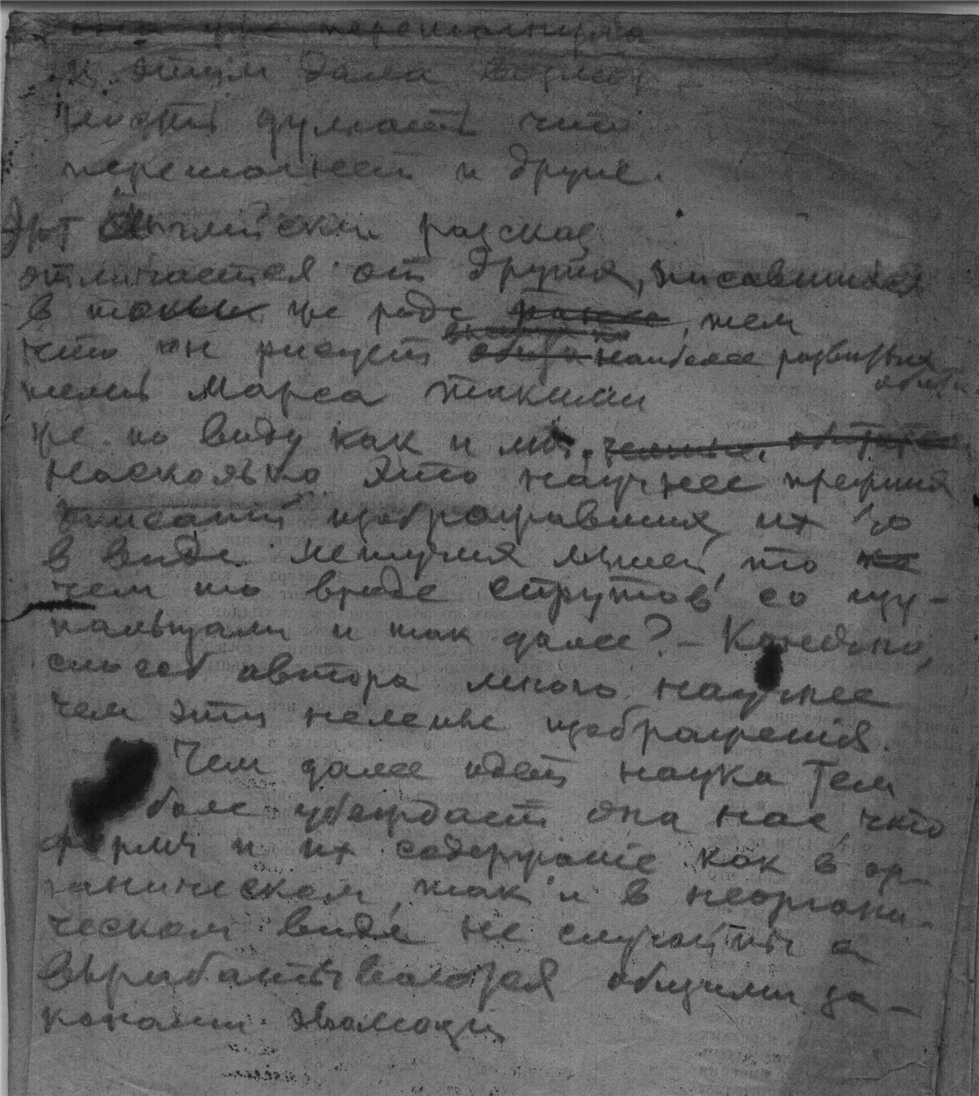 она уже перешагнула
и этим дала возмож
ность думать что
перешагнет и другие.
Этот Английский рассказ
отличается от других, писавшихся
в таком же роде ранее, тем
что он рисует наиболее развитых
обита
телей Марса такими
же по виду как и мы.
Насколько это научнее прежних
писаний изображавших их то
в виде летучих мышей, то
чем то вроде спрутов со щу-
пальцами и так далее? – Конечно,
способ автора много научнее
чем эти нелепые изображения.
Чем далее идет наука тем
более убеждает она нас, что
формы и их содержание как в ор-
ганическом, так и в неоргани-
ческом виде не случайны а
вырабатываются общими за-
конами эволюции